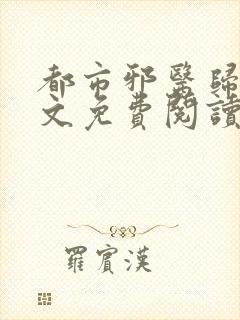 都市邪醫歸
文免費閱讀
羅賓漢